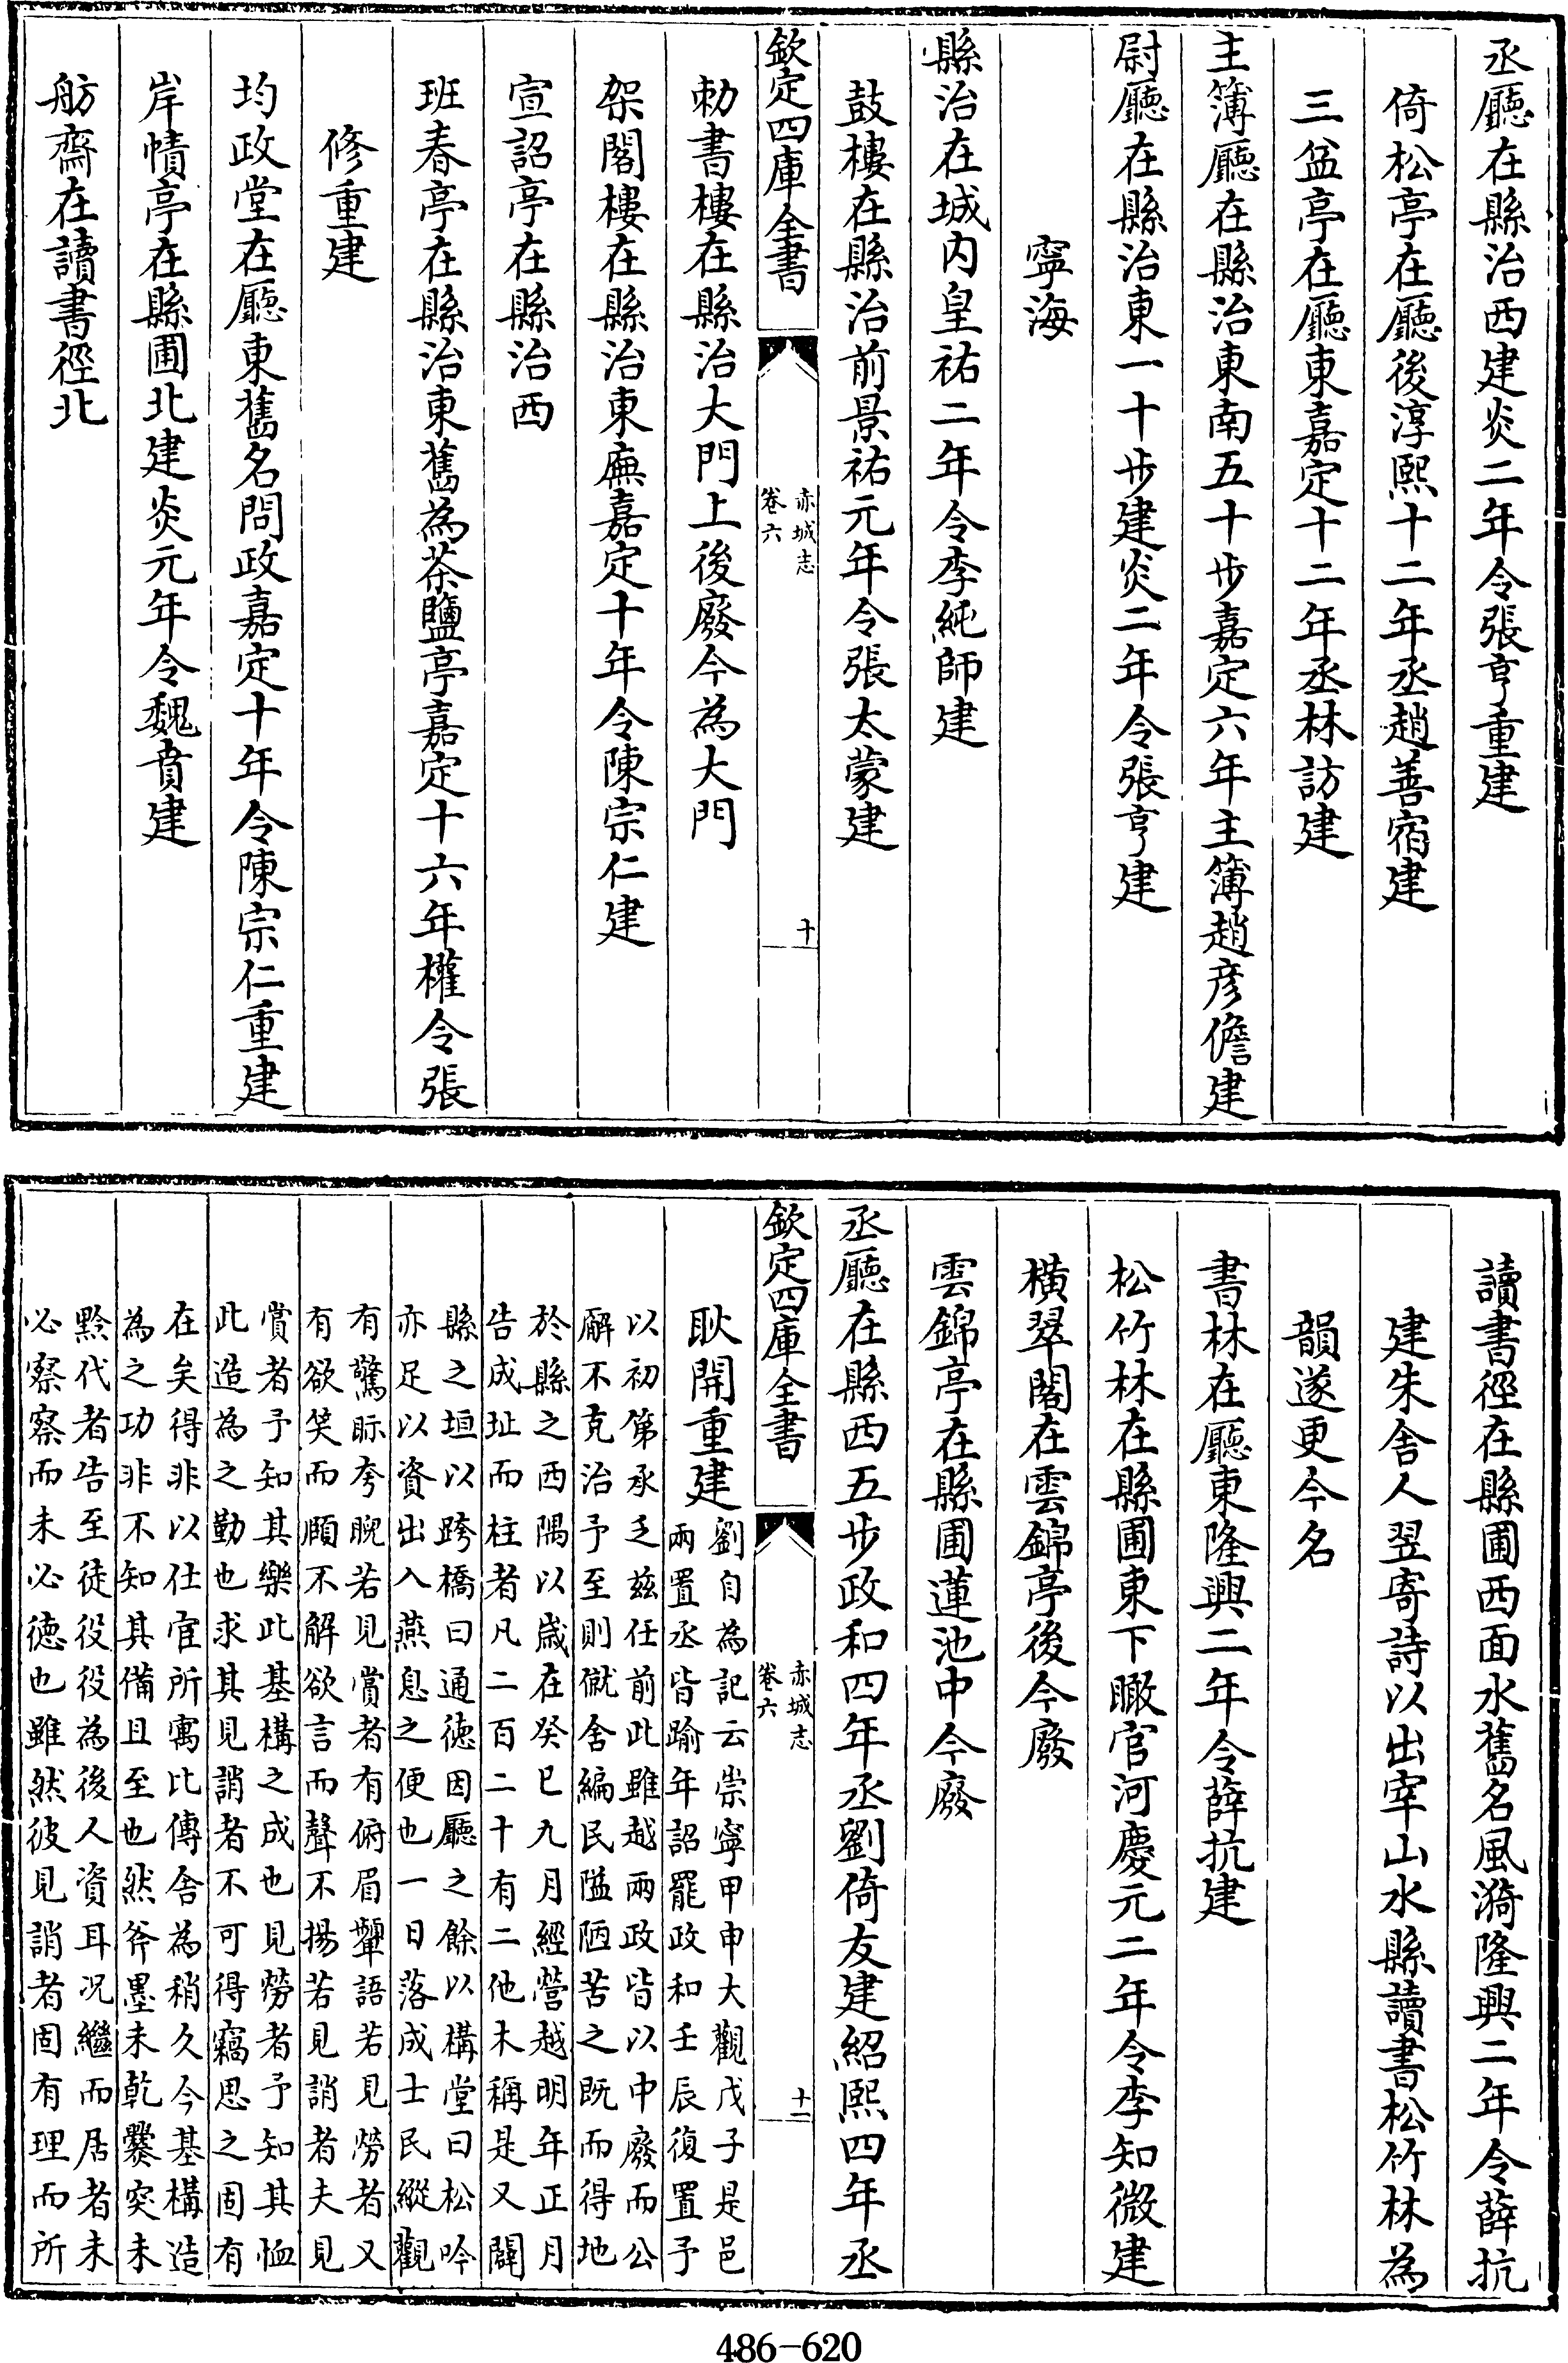 丞廳在縣治西建炎二年令張亨重建
倚松亭在廳後淳熙十二年丞趙善宿建
三盆亭在廳東嘉定十二年丞林訪建
主簿廳在縣治東南五十步嘉定六年主簿趙彦儋建
尉廳在縣治東一十步建炎二年令張亨建
寧海
縣治在城内皇祐二年令李純師建
鼓樓在縣治前景祐元年令張太蒙建
欽定四庫全書
赤城志
卷六
十
勅書樓在縣治大門上後廢今為大門
架閣樓在縣治東廡嘉定十年令陳宗仁建
宣詔亭在縣治西
班春亭在縣治東舊為茶鹽亭嘉定十六年權令張
修重建
均政堂在廳東舊名問政嘉定十年令陳宗仁重建
岸幘亭在縣圃北建炎元年令魏賁建
舫齋在讀書徑北
讀書徑在縣圃西面水舊名風漪隆興二年令薛抗
建朱舍人翌寄詩以出宰山水縣讀書松竹林為
韻遂更今名
書林在廳東隆興二年令薛抗建
松竹林在縣圃東下瞰官河慶元二年令李知微建
橫翠閣在雲錦亭後今廢
雲錦亭在縣圃蓮池中今廢
丞廳在縣西五步政和四年丞劉倚友建紹熙四年丞
欽定四庫全書
赤城志
卷六
十一
耿開重建
劉自為記云崇寧甲申大觀戊子是邑
兩置丞皆踰年詔罷政和壬辰復置予
以初第承乏兹任前此雖越兩政皆以中廢而公
廨不克治予至則僦舍編民隘陋苦之既而得地
於縣之西隅以歲在癸巳九月經營越明年正月
告成址而柱者凡二百二十有二他木稱是又闢
縣之垣以跨橋曰通德因廳之餘以構堂曰松吟
亦足以資出入燕息之便也一日落成士民縱觀
有驚眎夸睨若見賞者有俯眉顰語若見勞者又
有欲笑而頋不解欲言而聲不揚若見誚者夫見
賞者予知其樂此基構之成也見勞者予知其恤
此造為之勤也求其見誚者不可得竊思之固有
在矣得非以仕宦所寓比傳舍為稍久今基構造
為之功非不知其備且至也然斧墨未乾爨突未
黔代者告至徒役役為後人資耳况繼而居者未
必察察而未必徳也雖然彼見誚者固有理而所
486-620